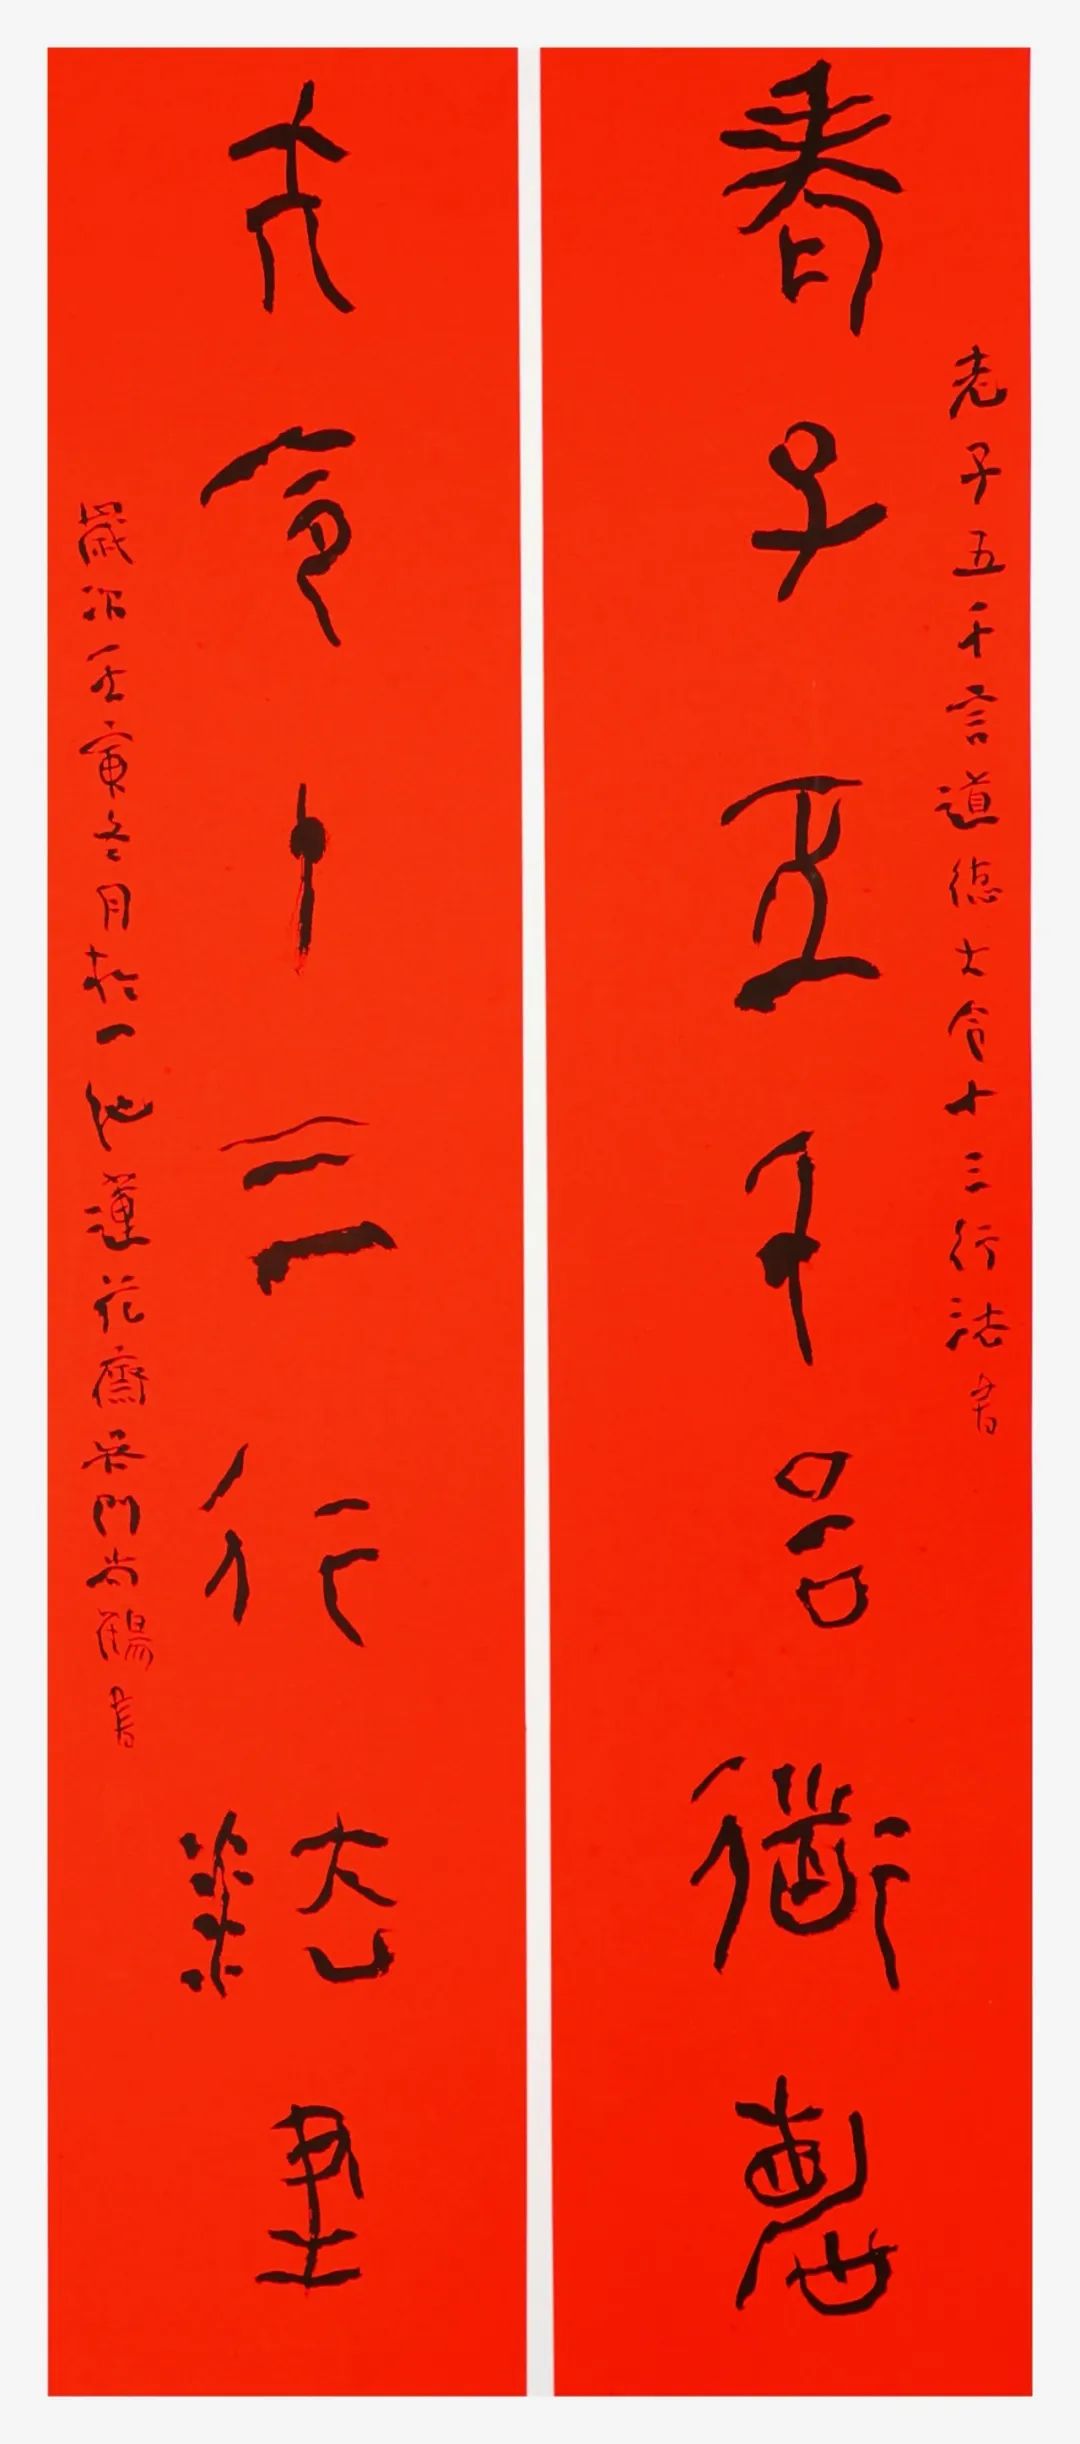 老子五千言道德大令十三行法書
老子五千言道德
大令十三行法書
歲次壬寅冬月於一池蓮花齋吳門尚鶴書